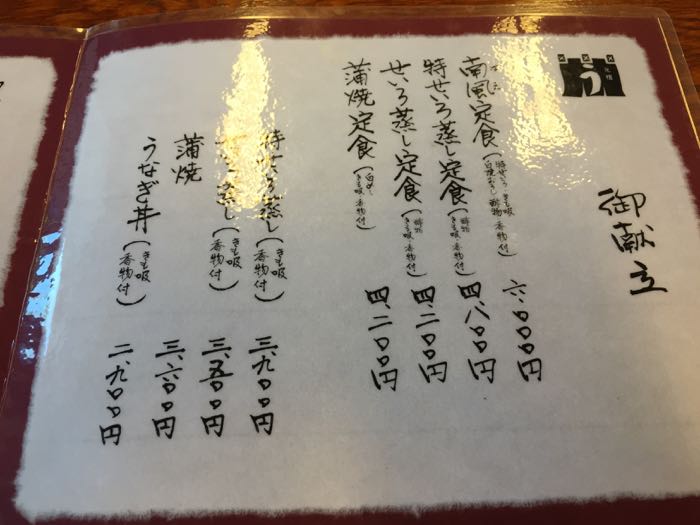 う
御献立
南風定食(特せいろ・きも吸 白焼おろし・酢物 香物付) 六、〇〇〇円
特せいろ蒸し定食(酢物 きも吸 香物付) 四、八〇〇円
せいろ蒸し定食(酢物 きも吸 香物付) 四、二〇〇円
蒲焼定食(白めし きも吸 香物付) 四、二〇〇円
特せいろ蒸し(きも吸 香物付) 三、九〇〇円
せいろ蒸し(きも吸 香物付) 三、五〇〇円
蒲焼 三、六〇〇円
うなぎ丼(きも吸 香物付) 二、九〇〇円